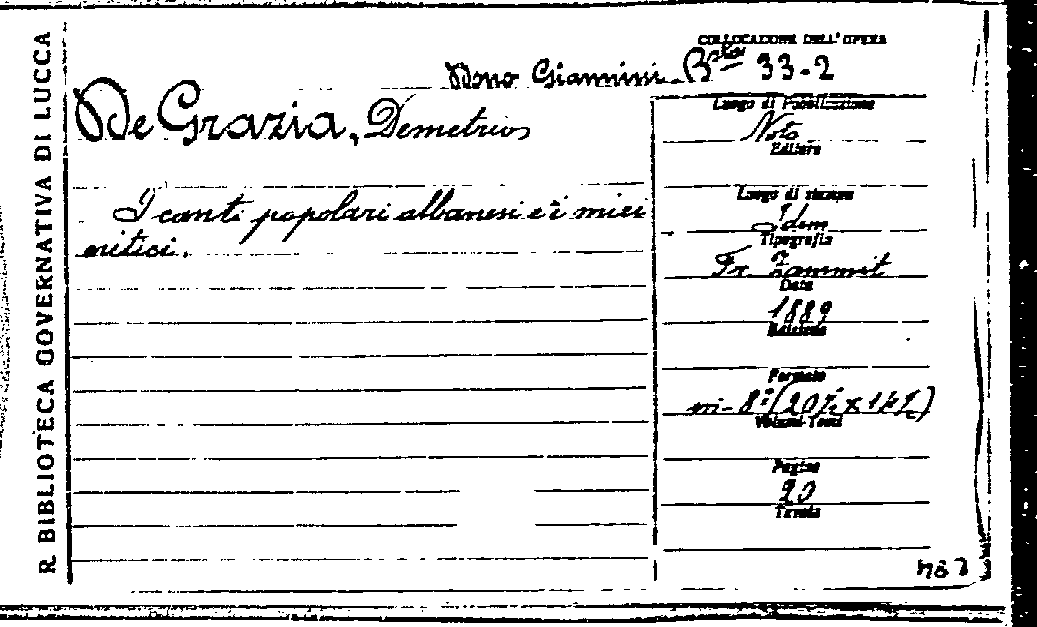 R. BIBLIOTECA GOVERNATIVA DI LUCCA
COLLOCAZIONE DELL'OPERA
Dono Giannini 33-2
De Grazia, Demetrios
I canti popolari albanesi e i miei
critici.
Luogo di Pubblicazione
Noto
Editore
Luogo di stampa
Idem
Tipografia
Fr. Zammit
Data
1889
Edizione
Formato
in-8º (20½ x 14½)
Volumi-Tomi
Pagine
20
Tavole